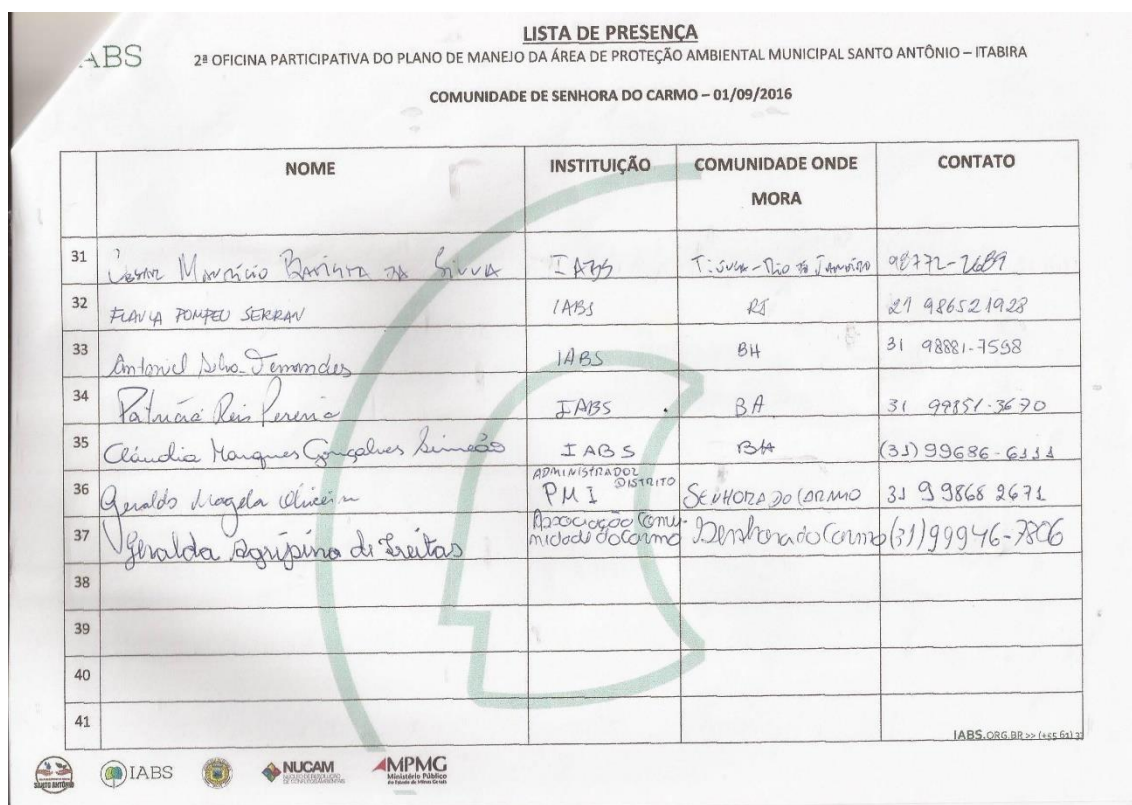 IABS
LISTA DE PRESENÇA
2ª OFICINA PARTICIPATIVA DO PLANO DE MANEJO DA ÁREA DE PROTEÇÃO AMBIENTAL MUNICIPAL SANTO ANTÔNIO – ITABIRA
COMUNIDADE DE SENHORA DO CARMO – 01/09/2016
NOME INSTITUIÇÃO COMUNIDADE ONDE MORA CONTATO
31 Maurício Batista da Silva IABS Tijuca - Rio de Janeiro 98772-2689
32 FLAVIA POMPEU SERRAN IABS RJ 21 986521928
33 Antoniel Silva Fernandes IABS BH 31 98881-7598
34 Patrícia Reis Pereira IABS BH 31 99851-3670
35 Cláudia Marques Gonçalves Simeão IABS BH (31) 99686-6111
36 Geraldo Magela Oliveira ADMINISTRADOR DISTRITO PMI SENHORA DO CARMO 31 9 9868 2671
37 Geralda Agripina de Freitas Associação Comunidade do Carmo Senhora do Carmo (31) 99946-7806
38
39
40
41
IABS.ORG.BR >> (+55 61) 3
SANTO ANTÔNIO
IABS
NUCAM
MPMG
Ministério Público
do Estado de Minas Gerais